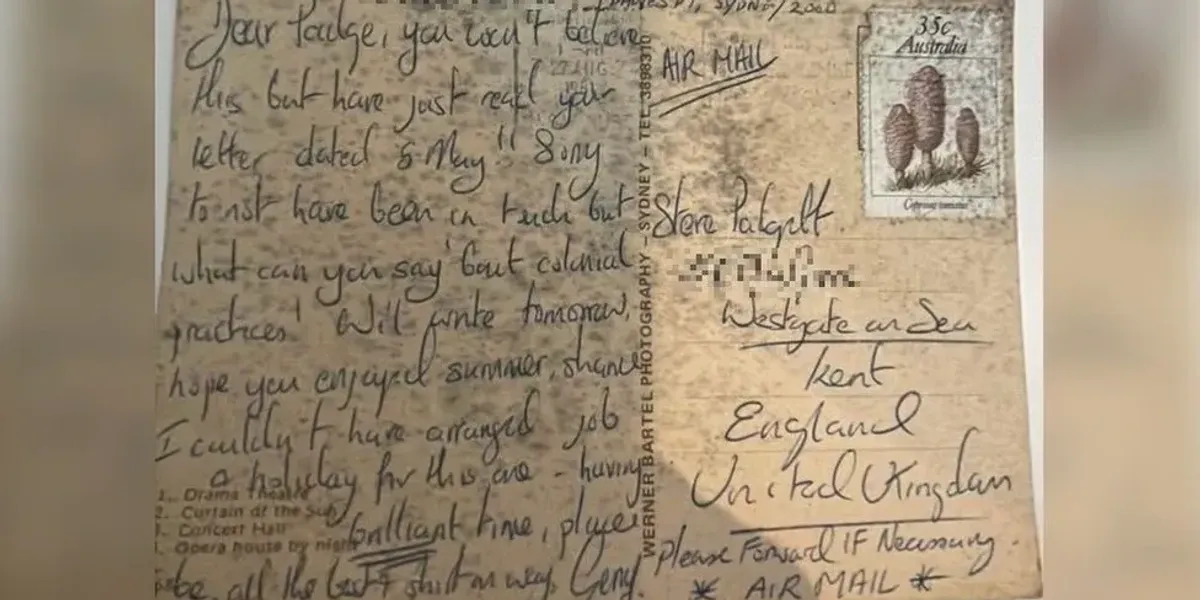 SYDNEY 2000
Dear Padge, you won't believe
this but have just read your
letter dated 5 May!! Sorry
to not have been in touch but
what can you say 'bout colonial
practices! Will write tomorrow,
hope you enjoyed summer, shame
I couldn't have arranged job
a holiday for this one - having
brilliant time, place
be, all the best & shirt on way, Gerry.
1. Drama Theatre
2. Curtain of the Sun
3. Concert Hall
4. Opera house by night
WERNER BARTEL PHOTOGRAPHY – SYDNEY – TEL. 3898310
AIR MAIL
35c
Australia
Steve Padgett.
Westgate on Sea
Kent
England
United Kingdom
Please Forward IF Necessary.
* AIR MAIL *